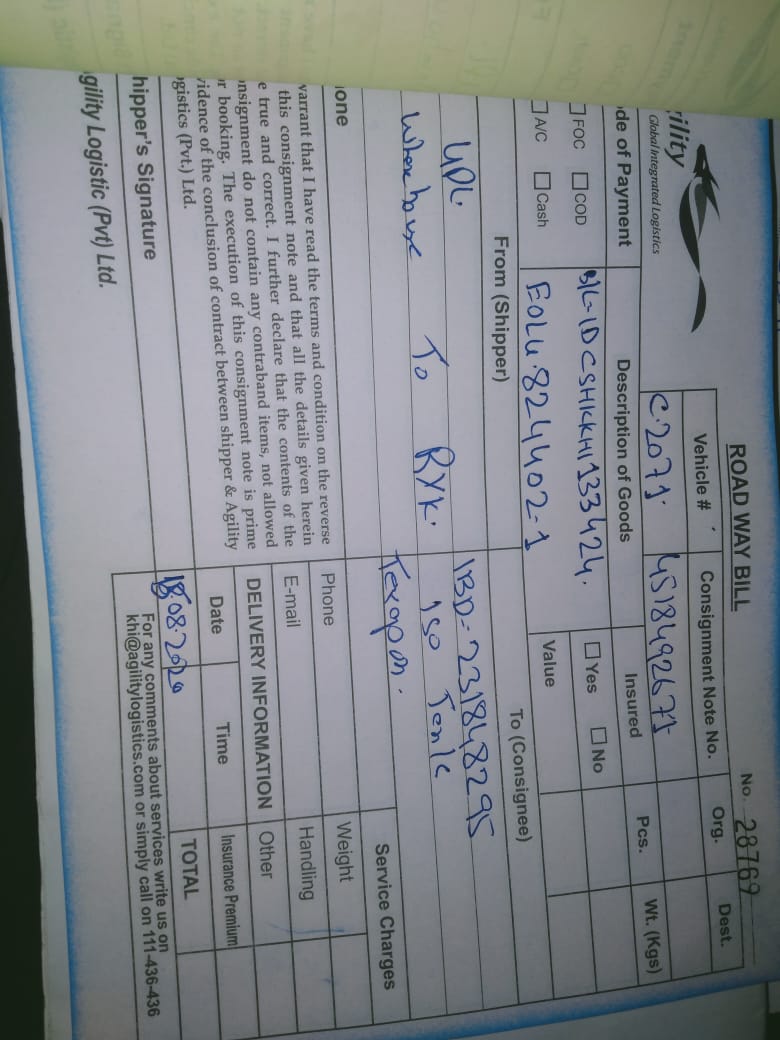 ROAD WAY BILL
No. 28769
gility
Global Integrated Logistics
Vehicle #
Consignment Note No.
Org.
Dest.
C.2071.
4518492671
de of Payment
Description of Goods
Insured
Pcs.
Wt. (Kgs)
FOC
COD
B/L-IDCSHKKHI133424.
Yes
No
A/C
Cash
EOLU.824402-1
Value
From (Shipper)
To (Consignee)
UPL
IBD-231848295
To RYK.
ISO Tank
one
Service Charges
warrant that I have read the terms and condition on the reverse
this consignment note and that all the details given herein
e true and correct. I further declare that the contents of the
nsignment do not contain any contraband items, not allowed
r booking. The execution of this consignment note is prime
vidence of the conclusion of contract between shipper & Agility
gistics (Pvt.) Ltd.
Phone
Weight
E-mail
Handling
DELIVERY INFORMATION
Other
Date
Time
Insurance Premium
18.08.2020
TOTAL
hipper's Signature
For any comments about services write us on
khi@agilitylogistics.com or simply call on 111-436-436
gility Logistic (Pvt) Ltd.